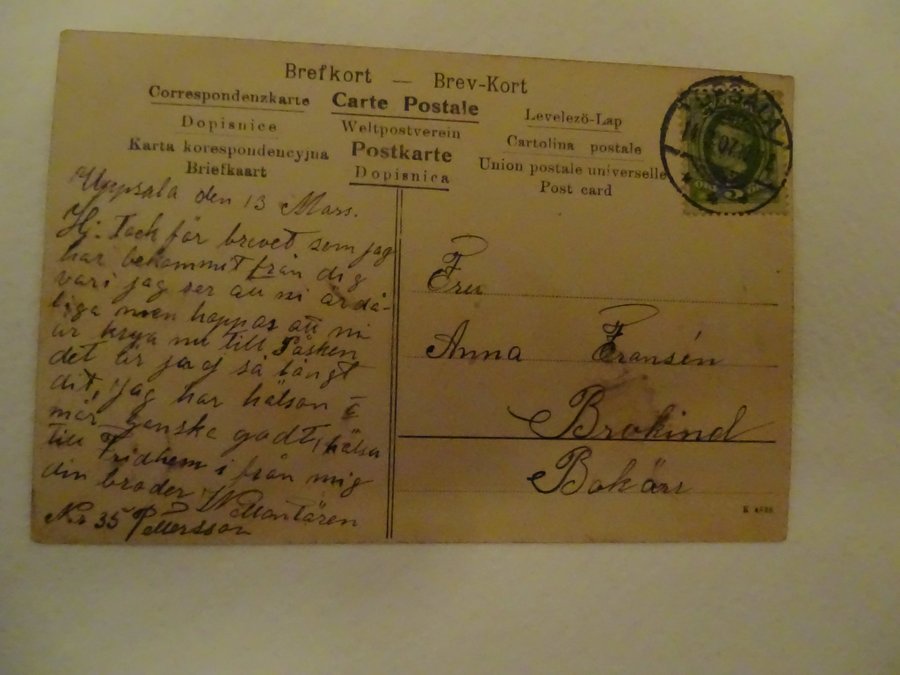 Brefkort — Brev-Kort
Correspondenzkarte Carte Postale Levelező-Lap
Dopisnice Weltpostverein Cartolina postale
Karta korespondencyjna Postkarte Union postale universelle
Briefkaart Dopisnica Post card
UPSALA
Uppsala den 13 Mars.
Hj. Tack för brevet som jag
har bekommit från dig
vari jag ser att ni är då-
liga men hoppas att ni
är krya nu till Påsken
det är ju ej så långt
dit, jag har hälsan å
mår ganska godt, hälsa
till Fridhem i från mig
din broder,
Nr 35 Pettersson
Fru
Anna Fransén
Brokind